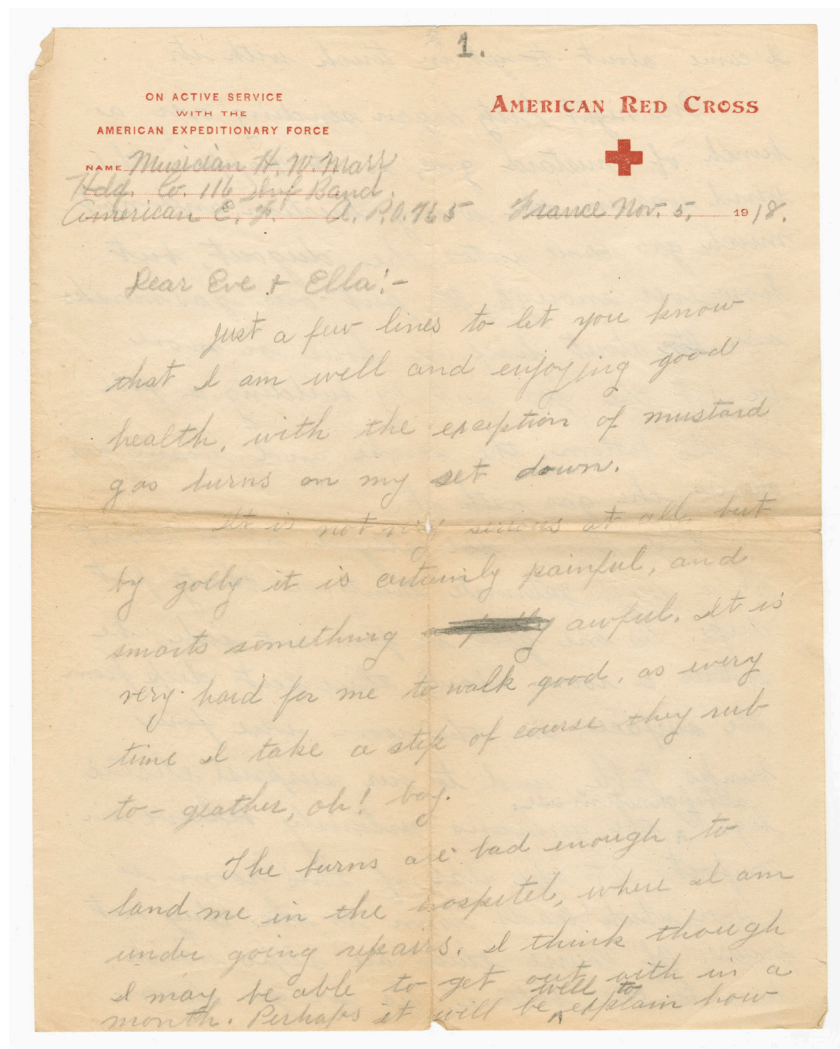 1.
ON ACTIVE SERVICE
WITH THE
AMERICAN EXPEDITIONARY FORCE
AMERICAN RED CROSS
NAME Musician H. W. Marr
Hdq. Co. 116 Inf Band.
American E. F. A. P.O. 765 France Nov. 5, 1918.
Dear Eve & Ella:-
Just a few lines to let you know
that I am well and enjoying good
health, with the exception of mustard
gas burns on my set down.
It is not very serious at all, but
by golly it is certainly painful, and
smarts something awful. It is
very hard for me to walk good, as every
time I take a step of course they rub
to-geather, oh! boy.
The burns are bad enough to
land me in the hospital, where I am
under going repairs. I think though
I may be able to get out with in a
month. Perhaps it will be well to explain how